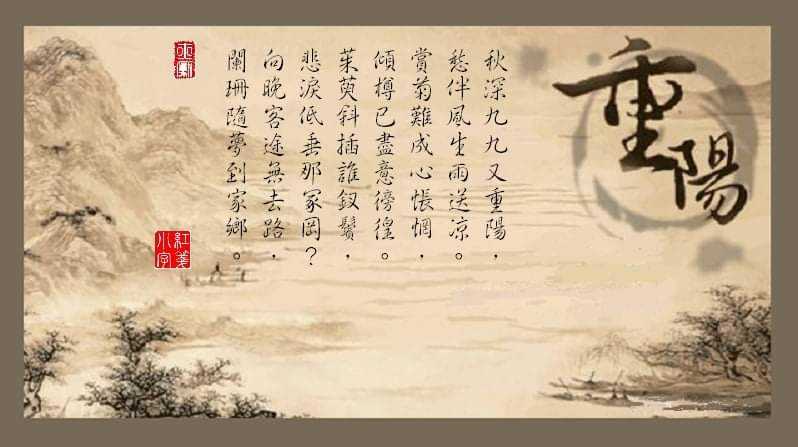 重陽
秋深九九又重陽，
愁伴風生雨送凉。
賞菊難成心悵惘，
傾樽已盡意徬徨。
茱萸斜插誰釵鬢，
悲淚低垂那冢岡？
向晚客途無去路，
闌珊隨夢到家鄉。
紅箋
小字